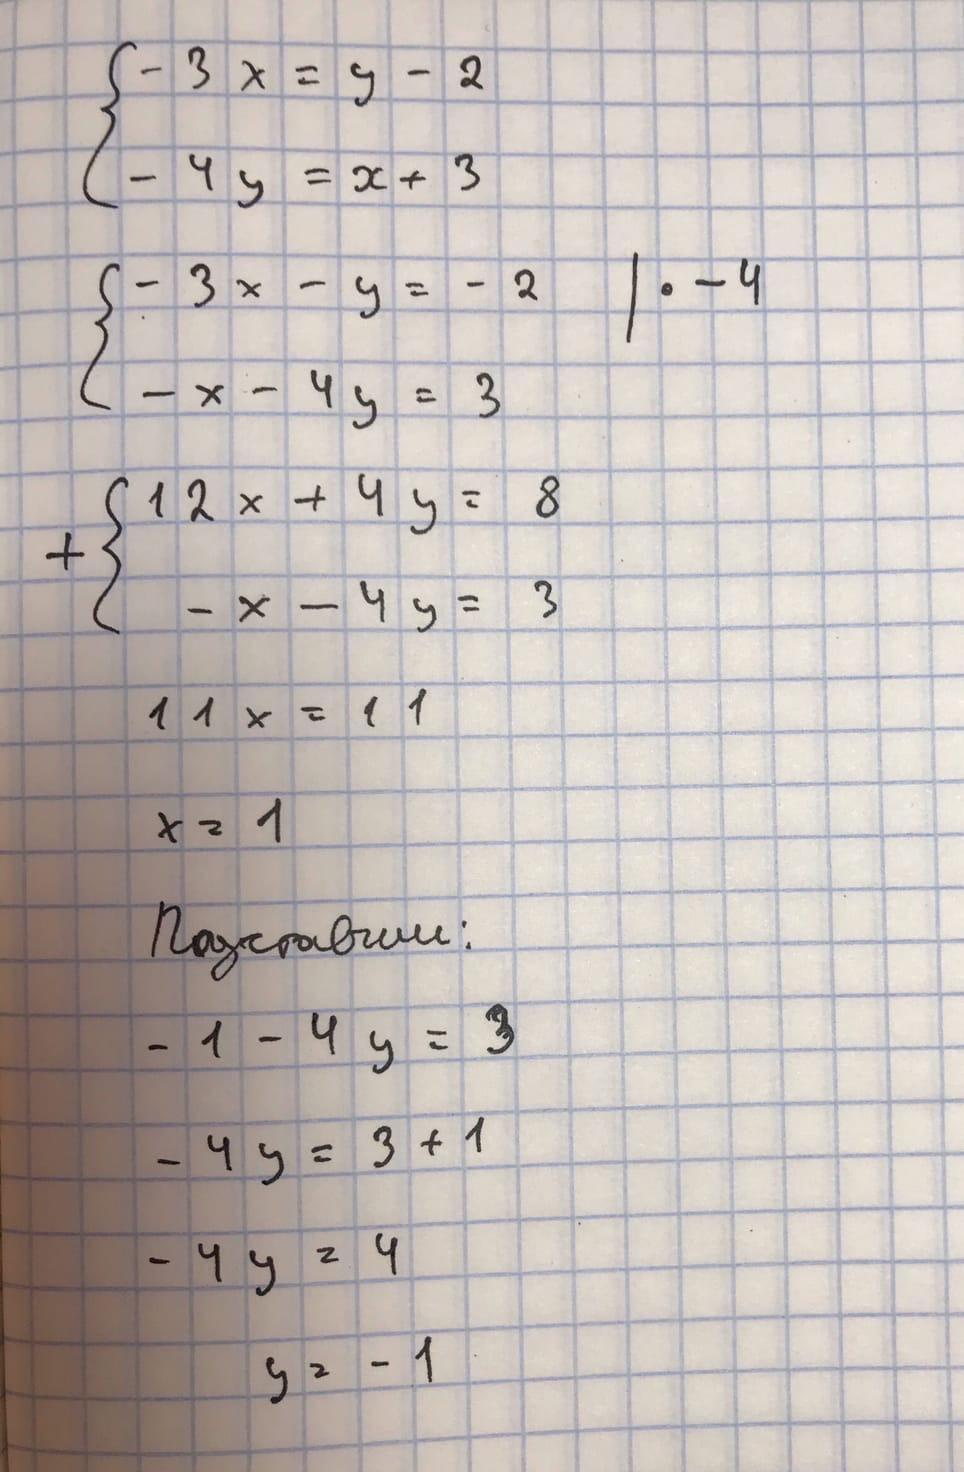 - 3 x = y - 2
- 4 y = x + 3
- 3 x - y = - 2 | • - 4
- x - 4 y = 3
+ 1 2 x + 4 y = 8
- x - 4 y = 3
1 1 x = 1 1
x = 1
Подставим:
- 1 - 4 y = 3
- 4 y = 3 + 1
- 4 y = 4
y = - 1